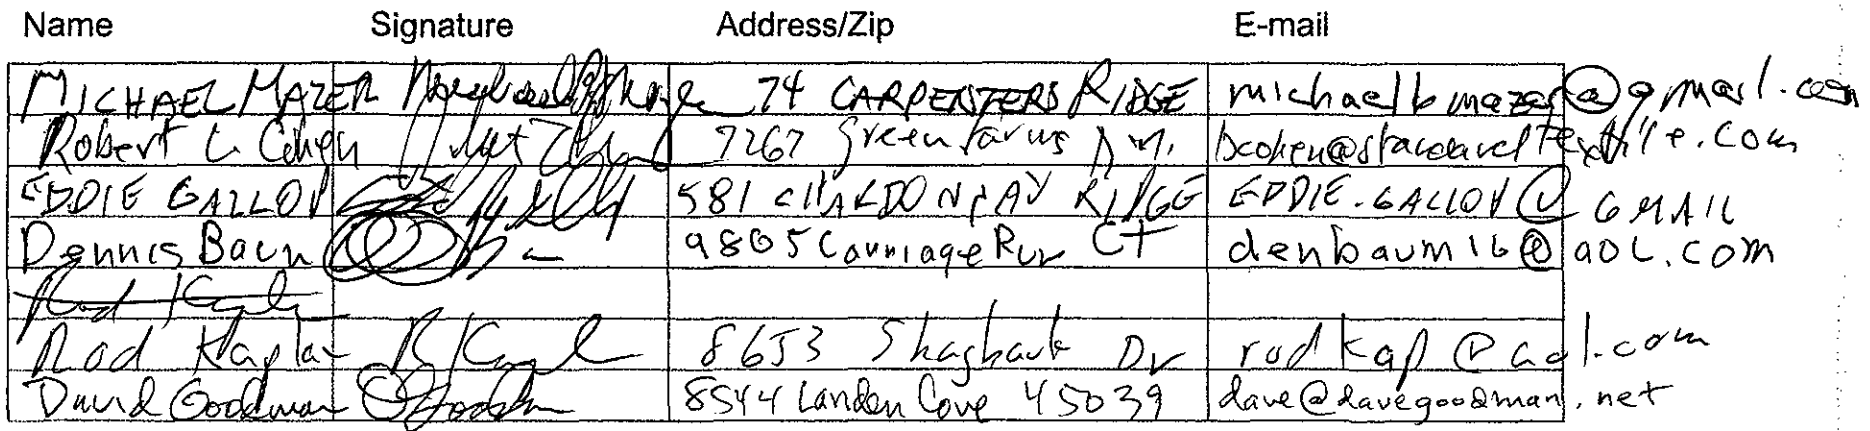 Name Signature Address/Zip E-mail
MICHAEL MAZER 74 CARPENTERS RIDGE michaelbmazer@gmail.com
Robert L Cohen 7267 Greenfarms Dr. bcohen@standardtextile.com
EDDIE GALLOV 581 CHARDONNAY RIDGE EDDIE.GALLOV@GMAIL
Dennis Baum 9805 Carriage Run CT denbaum16@aol.com
Rod Kaplan
Rod Kaplan R Kapl 8653 Shagbark Dr rodkap@aol.com
David Goodman DGoodman 8544 Landen Cove 45039 dave@davegoodman.net